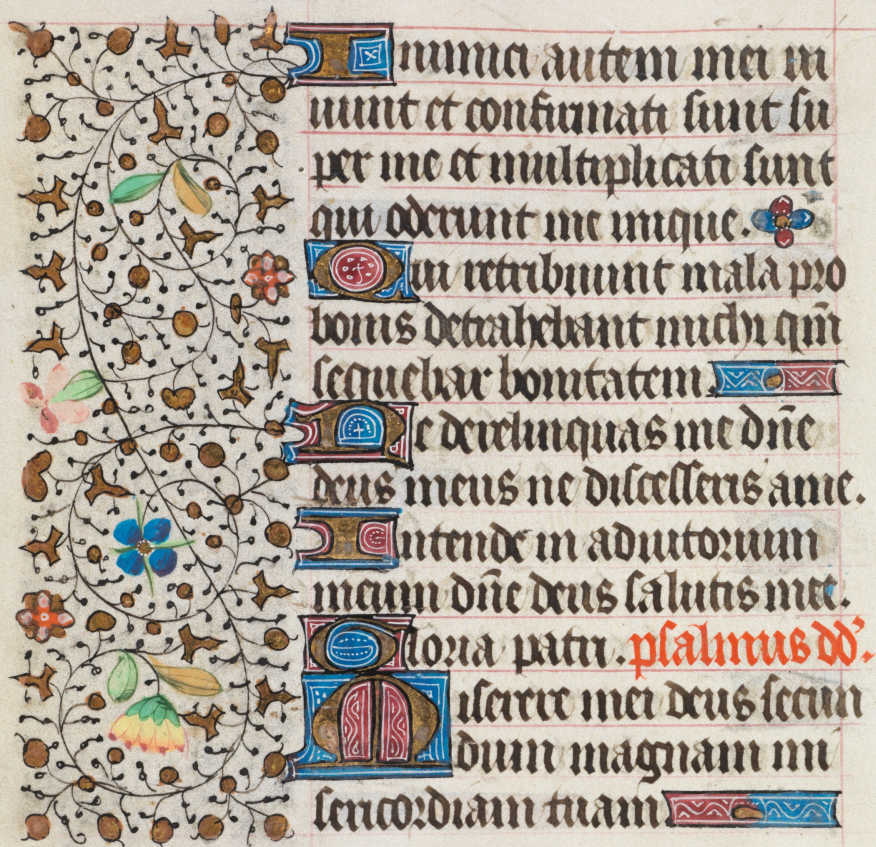 Inimici autem mei ui
uunt et confirmati sunt su
per me et multiplicati sunt
qui oderunt me inique.
Qui retribuunt mala pro
bonis detrahebant michi qm̄
sequebar bonitatem.
Ne derelinquas me dn̄e
deus meus ne discesseris a me.
Intende in adiutorium
meum dn̄e deus salutis mee.
Gloria patri. psalmus dd'.
Miserere mei deus secun
dum magnam mi
sericordiam tuam